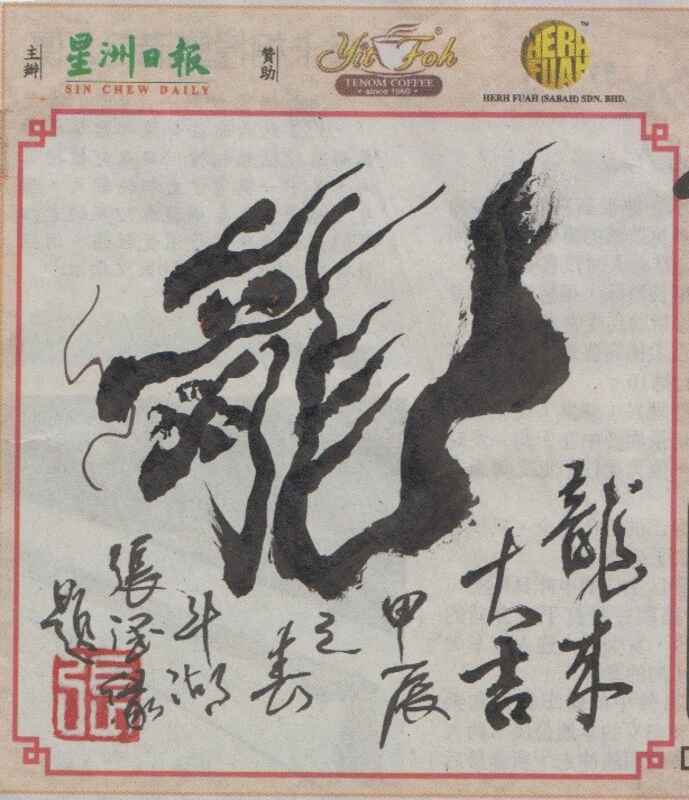 主辦
星洲日報
SIN CHEW DAILY
贊助
Yit Foh
TENOM COFFEE
• since 1960 •
HERH
FUAH
™
HERH FUAH (SABAH) SDN. BHD.
龍
龍來
大吉
甲辰
之春
斗湖
張
題